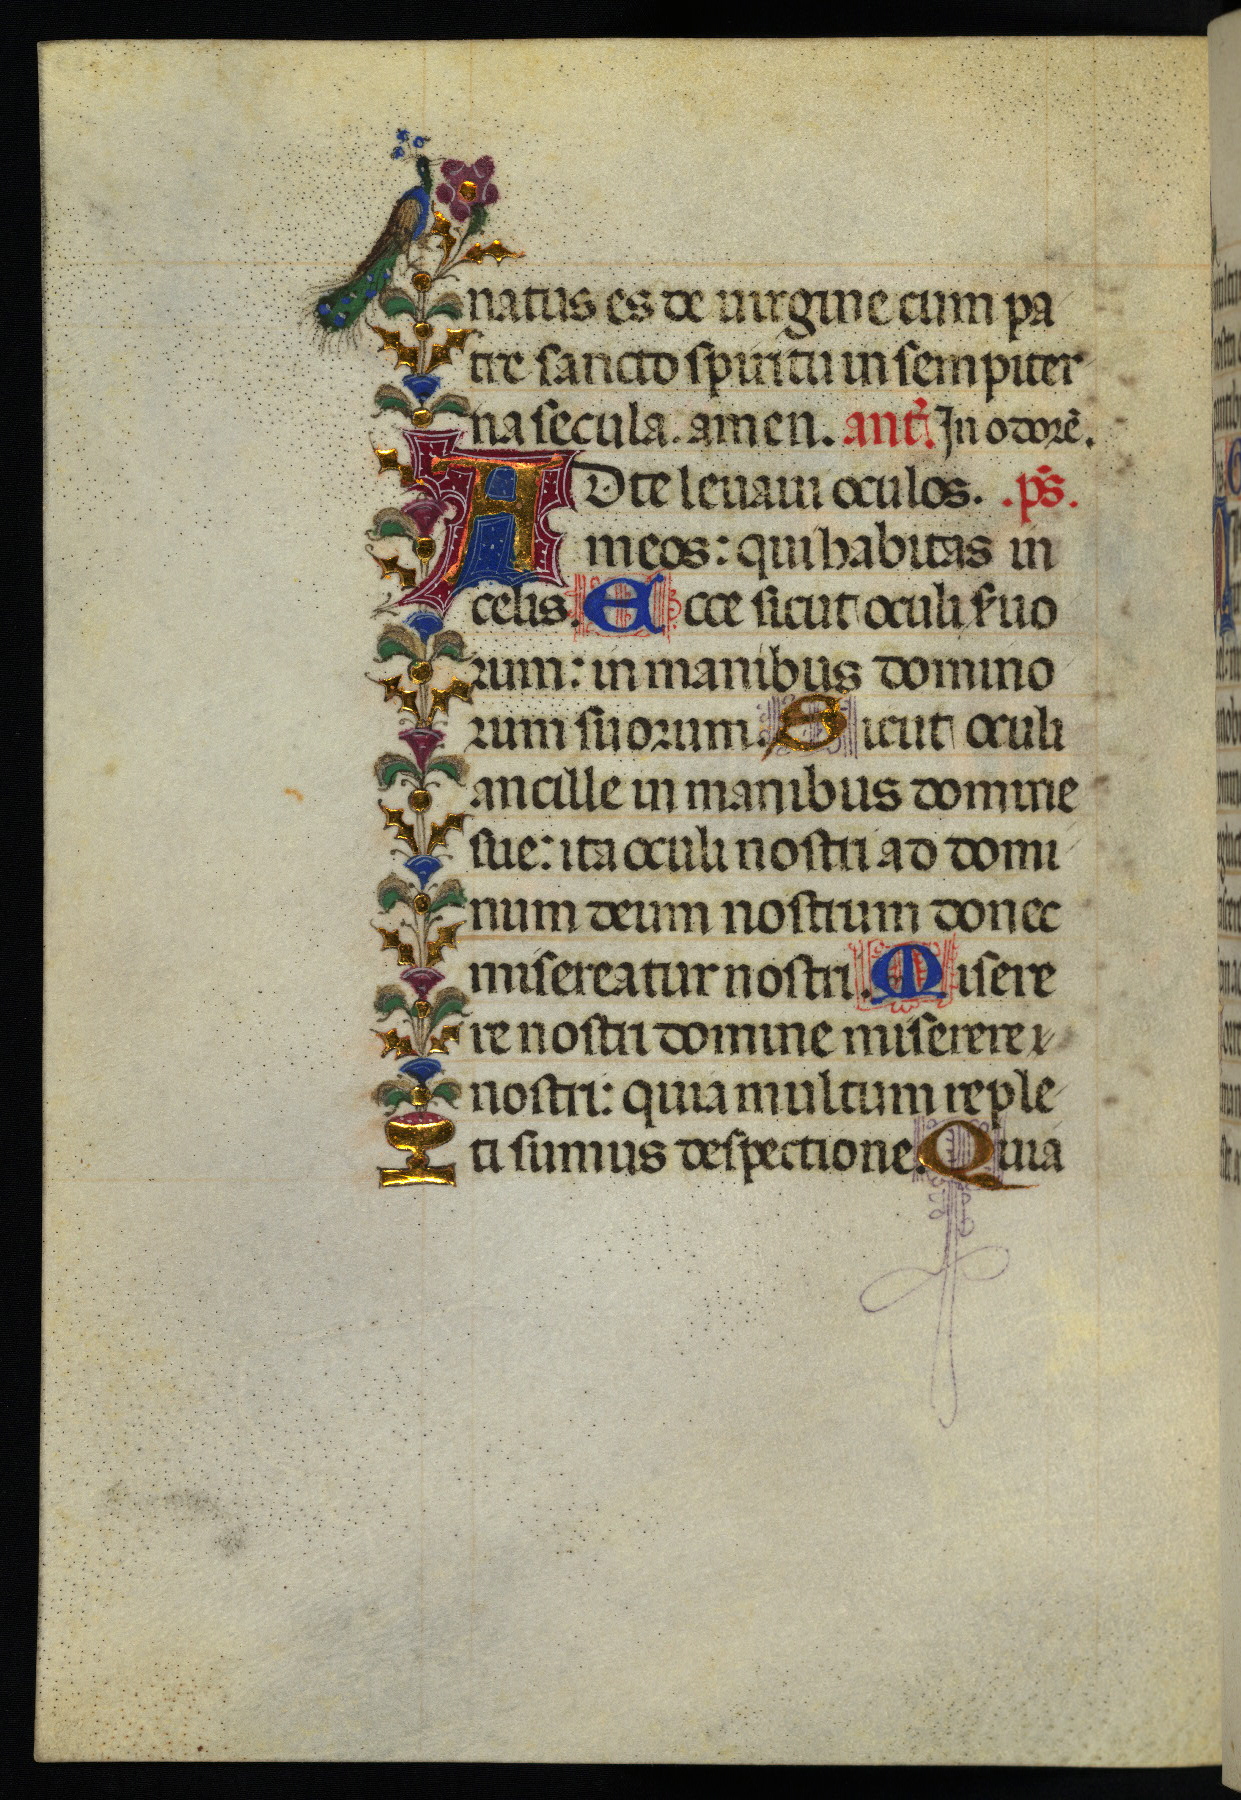 natus es de uirgine cum pa
tre sancto spiritu in sempiter
na secula. amen. ant̃. In odorẽ.
AD te leuaui oculos. .ps̃.
meos: qui habitas in
celis. Ecce sicut oculi seruo
rum: in manibus domino
rum suorum. Sicut oculi
ancille in manibus domine
sue: ita oculi nostri ad domi
num deum nostrum donec
misereatur nostri. Misere
re nostri domine miserere
nostri: quia multum reple
ti sumus despectione. Quia